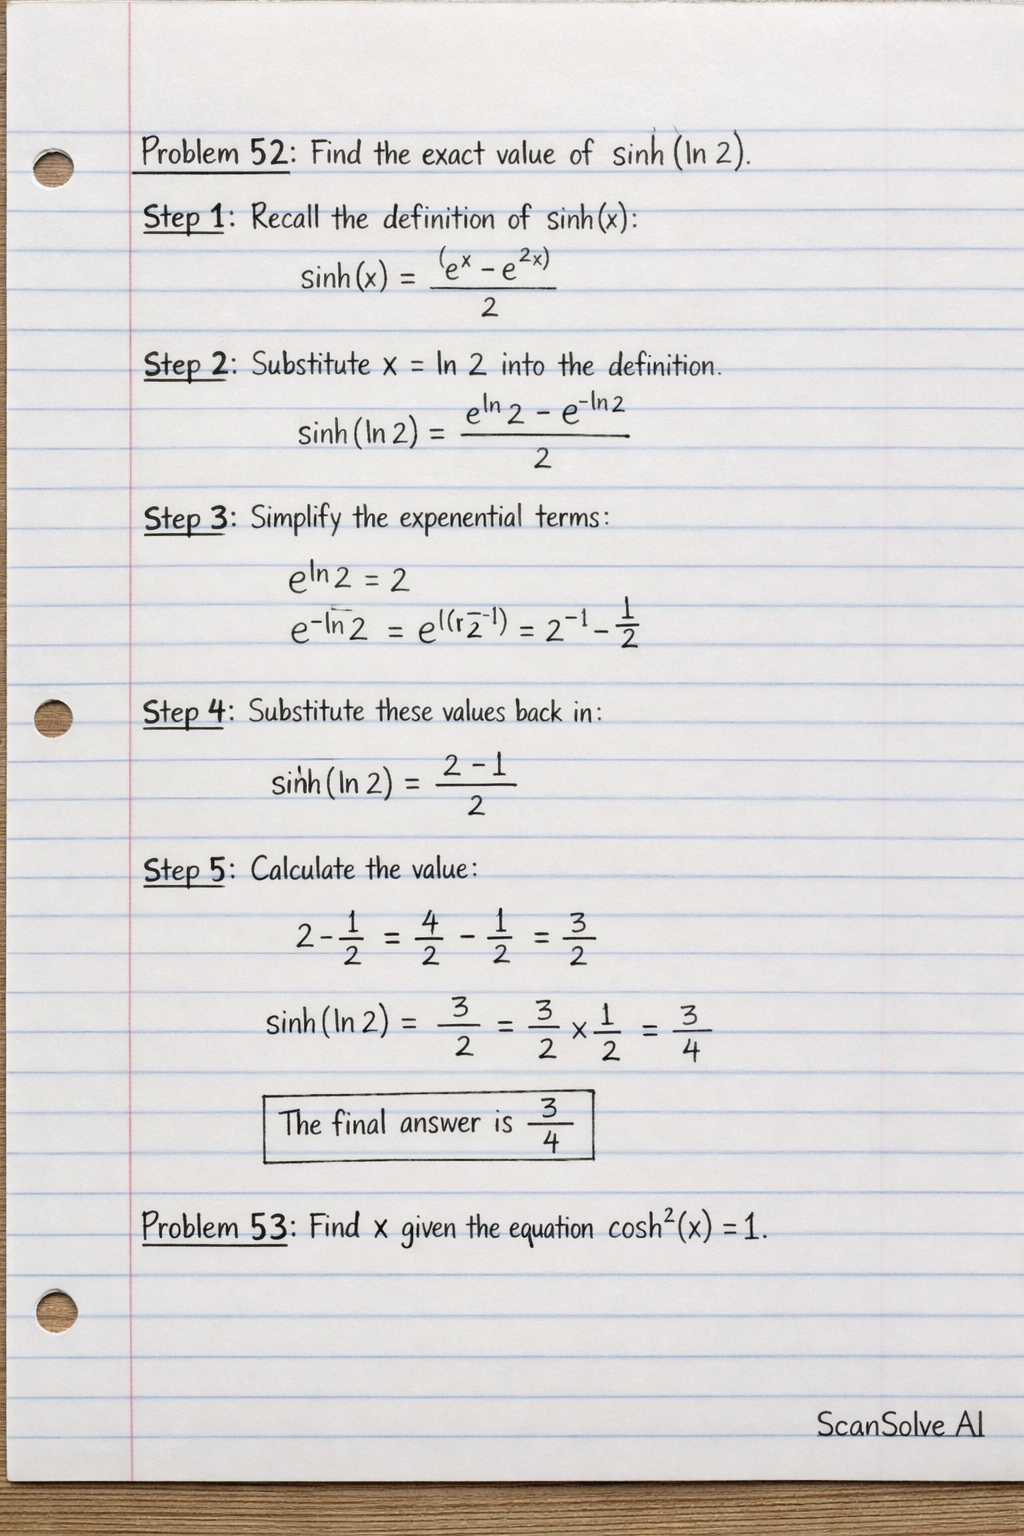 Problem 52: Find the exact value of sinh (ln 2).
Step 1: Recall the definition of sinh(x):
sinh(x) = (e^x - e^2x)
2
Step 2: Substitute x = ln 2 into the definition.
sinh(ln 2) = e^ln 2 - e^-ln2
2
Step 3: Simplify the expenential terms:
e^ln 2 = 2
e^-ln 2 = e^l(r 2^-1) = 2^-1 - 1/2
Step 4: Substitute these values back in:
sinh(ln 2) = 2 - 1
2
Step 5: Calculate the value:
2 - 1/2 = 4/2 - 1/2 = 3/2
sinh(ln 2) = 3/2 = 3/2 × 1/2 = 3/4
The final answer is 3/4
Problem 53: Find x given the equation cosh²(x) = 1.
ScanSolve AI